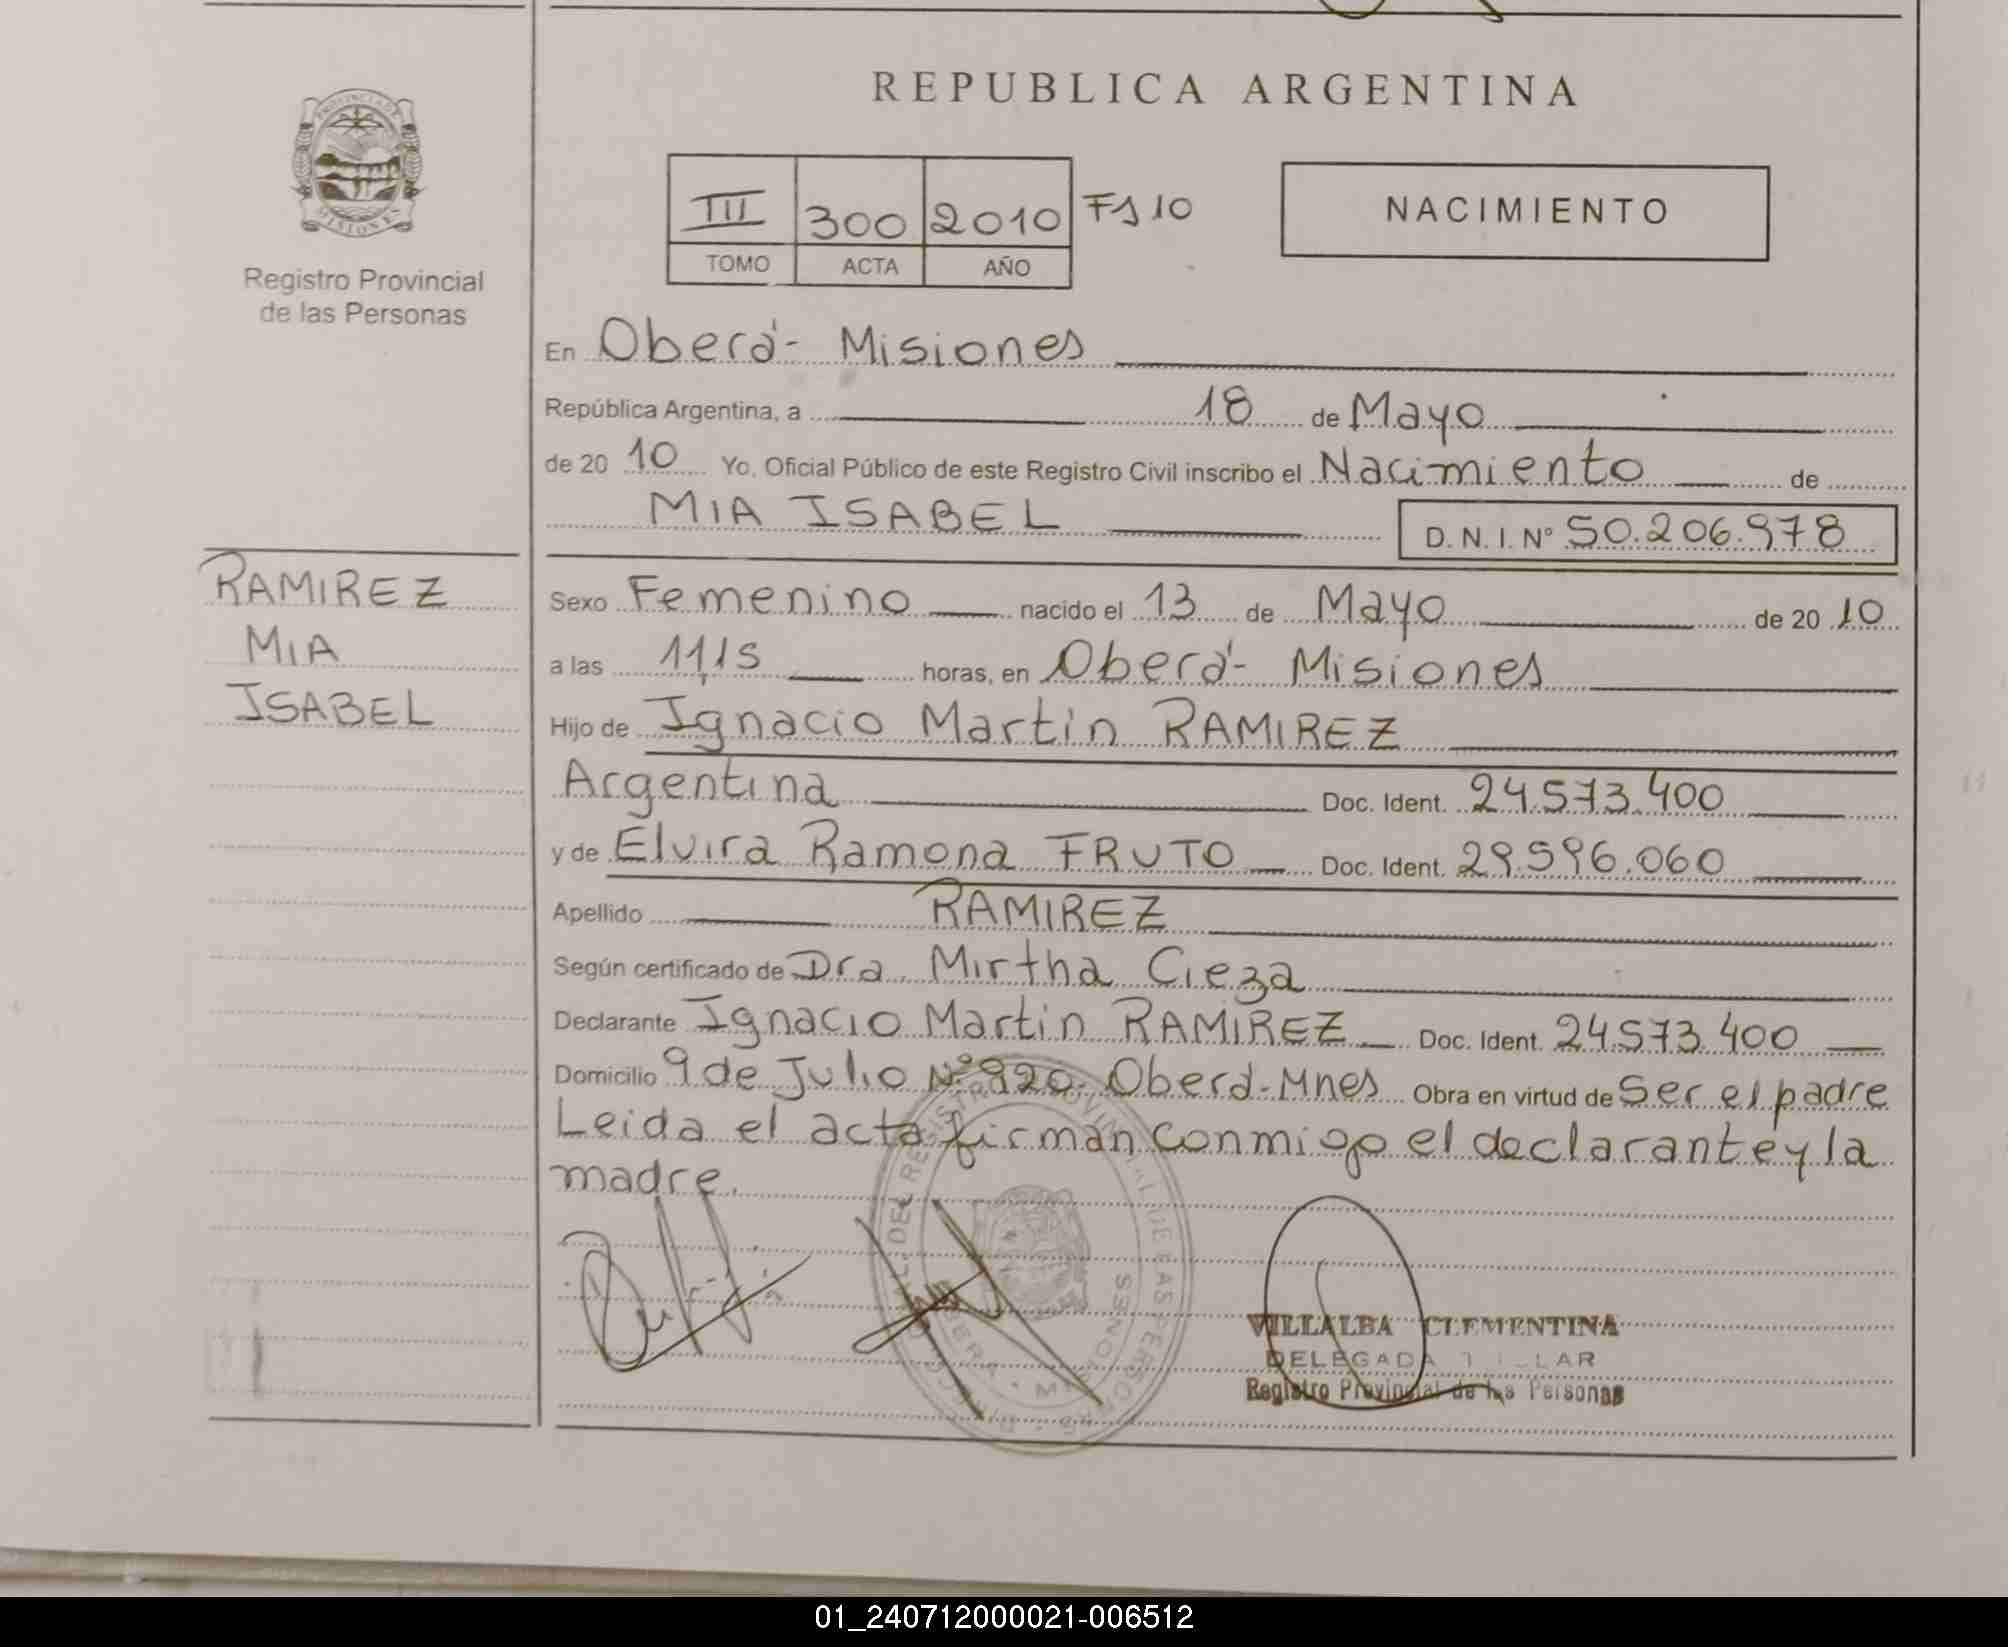 REPUBLICA ARGENTINA
PROVINCIA DE MISIONES
Registro Provincial
de las Personas
III 300 2010 FS 10
TOMO ACTA AÑO
NACIMIENTO
En Oberá- Misiones
República Argentina, a 18 de Mayo
de 20 10 Yo, Oficial Público de este Registro Civil inscribo el Nacimiento de
MIA ISABEL D.N.I. Nº 50.206.978
RAMIREZ
MIA
ISABEL
Sexo Femenino nacido el 13 de Mayo de 20 10
a las 11,15 horas, en Oberá- Misiones
Hijo de Ignacio Martin RAMIREZ
Argentina Doc. Ident. 24.573.400
y de Elvira Ramona FRUTO Doc. Ident. 29.596.060
Apellido RAMIREZ
Según certificado de Dra. Mirtha Cieza
Declarante Ignacio Martin RAMIREZ Doc. Ident. 24.573.400
Domicilio 9 de Julio Nº 920- Oberá-Mnes Obra en virtud de Ser el padre
Leida el acta firman conmigo el declarante y la
madre.
VILLALBA CLEMENTINA
DELEGADA
Registro Provincial de las Personas
01_240712000021-006512